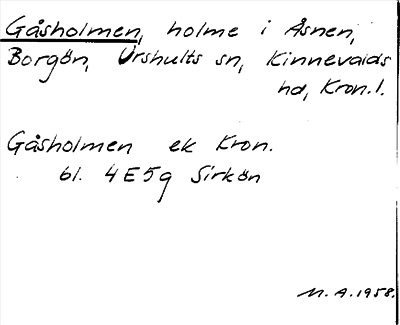 Gåsholmen, holme i Åsnen,
Borgön, Urshults sn, Kinnevalds
hd, Kron.l.
Gåsholmen ek Kron.
bl. 4E5g Sirkön
M. A. 1958.